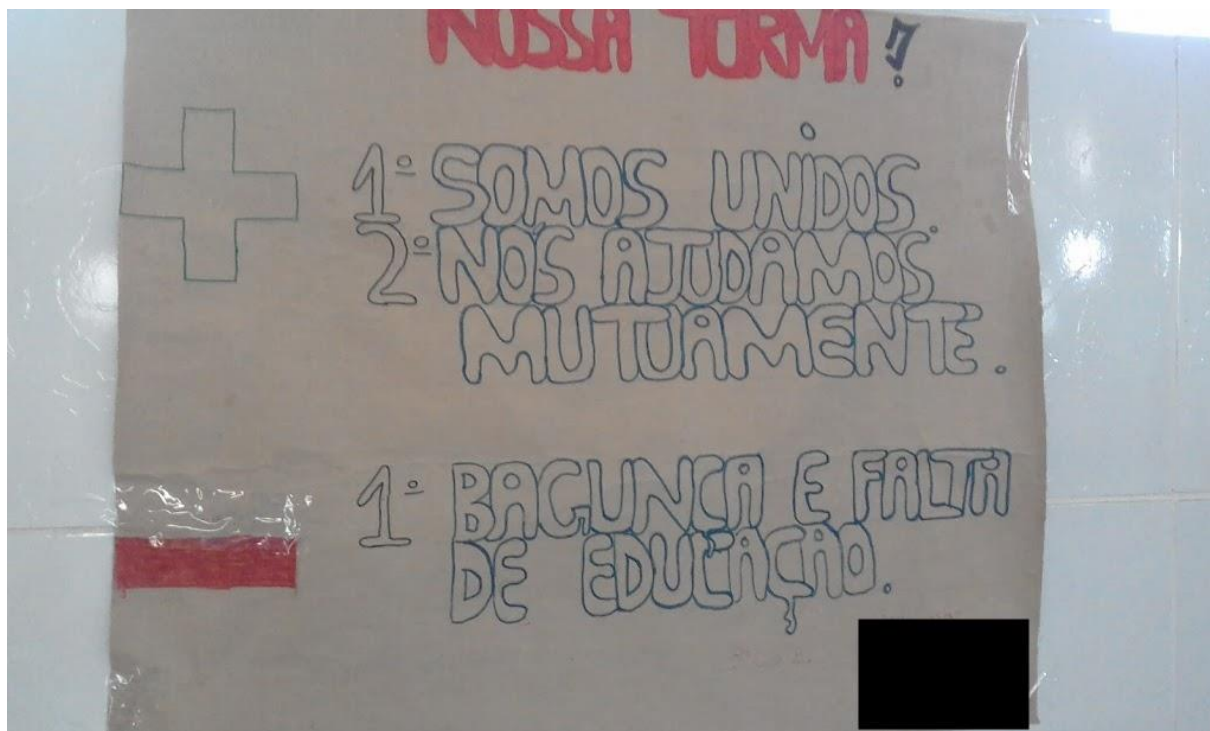 NOSSA TURMA!
1º SOMOS UNIDOS.
2º NOS AJUDAMOS
MUTUAMENTE.
1º BAGUNÇA E FALTA
DE EDUCAÇÃO.